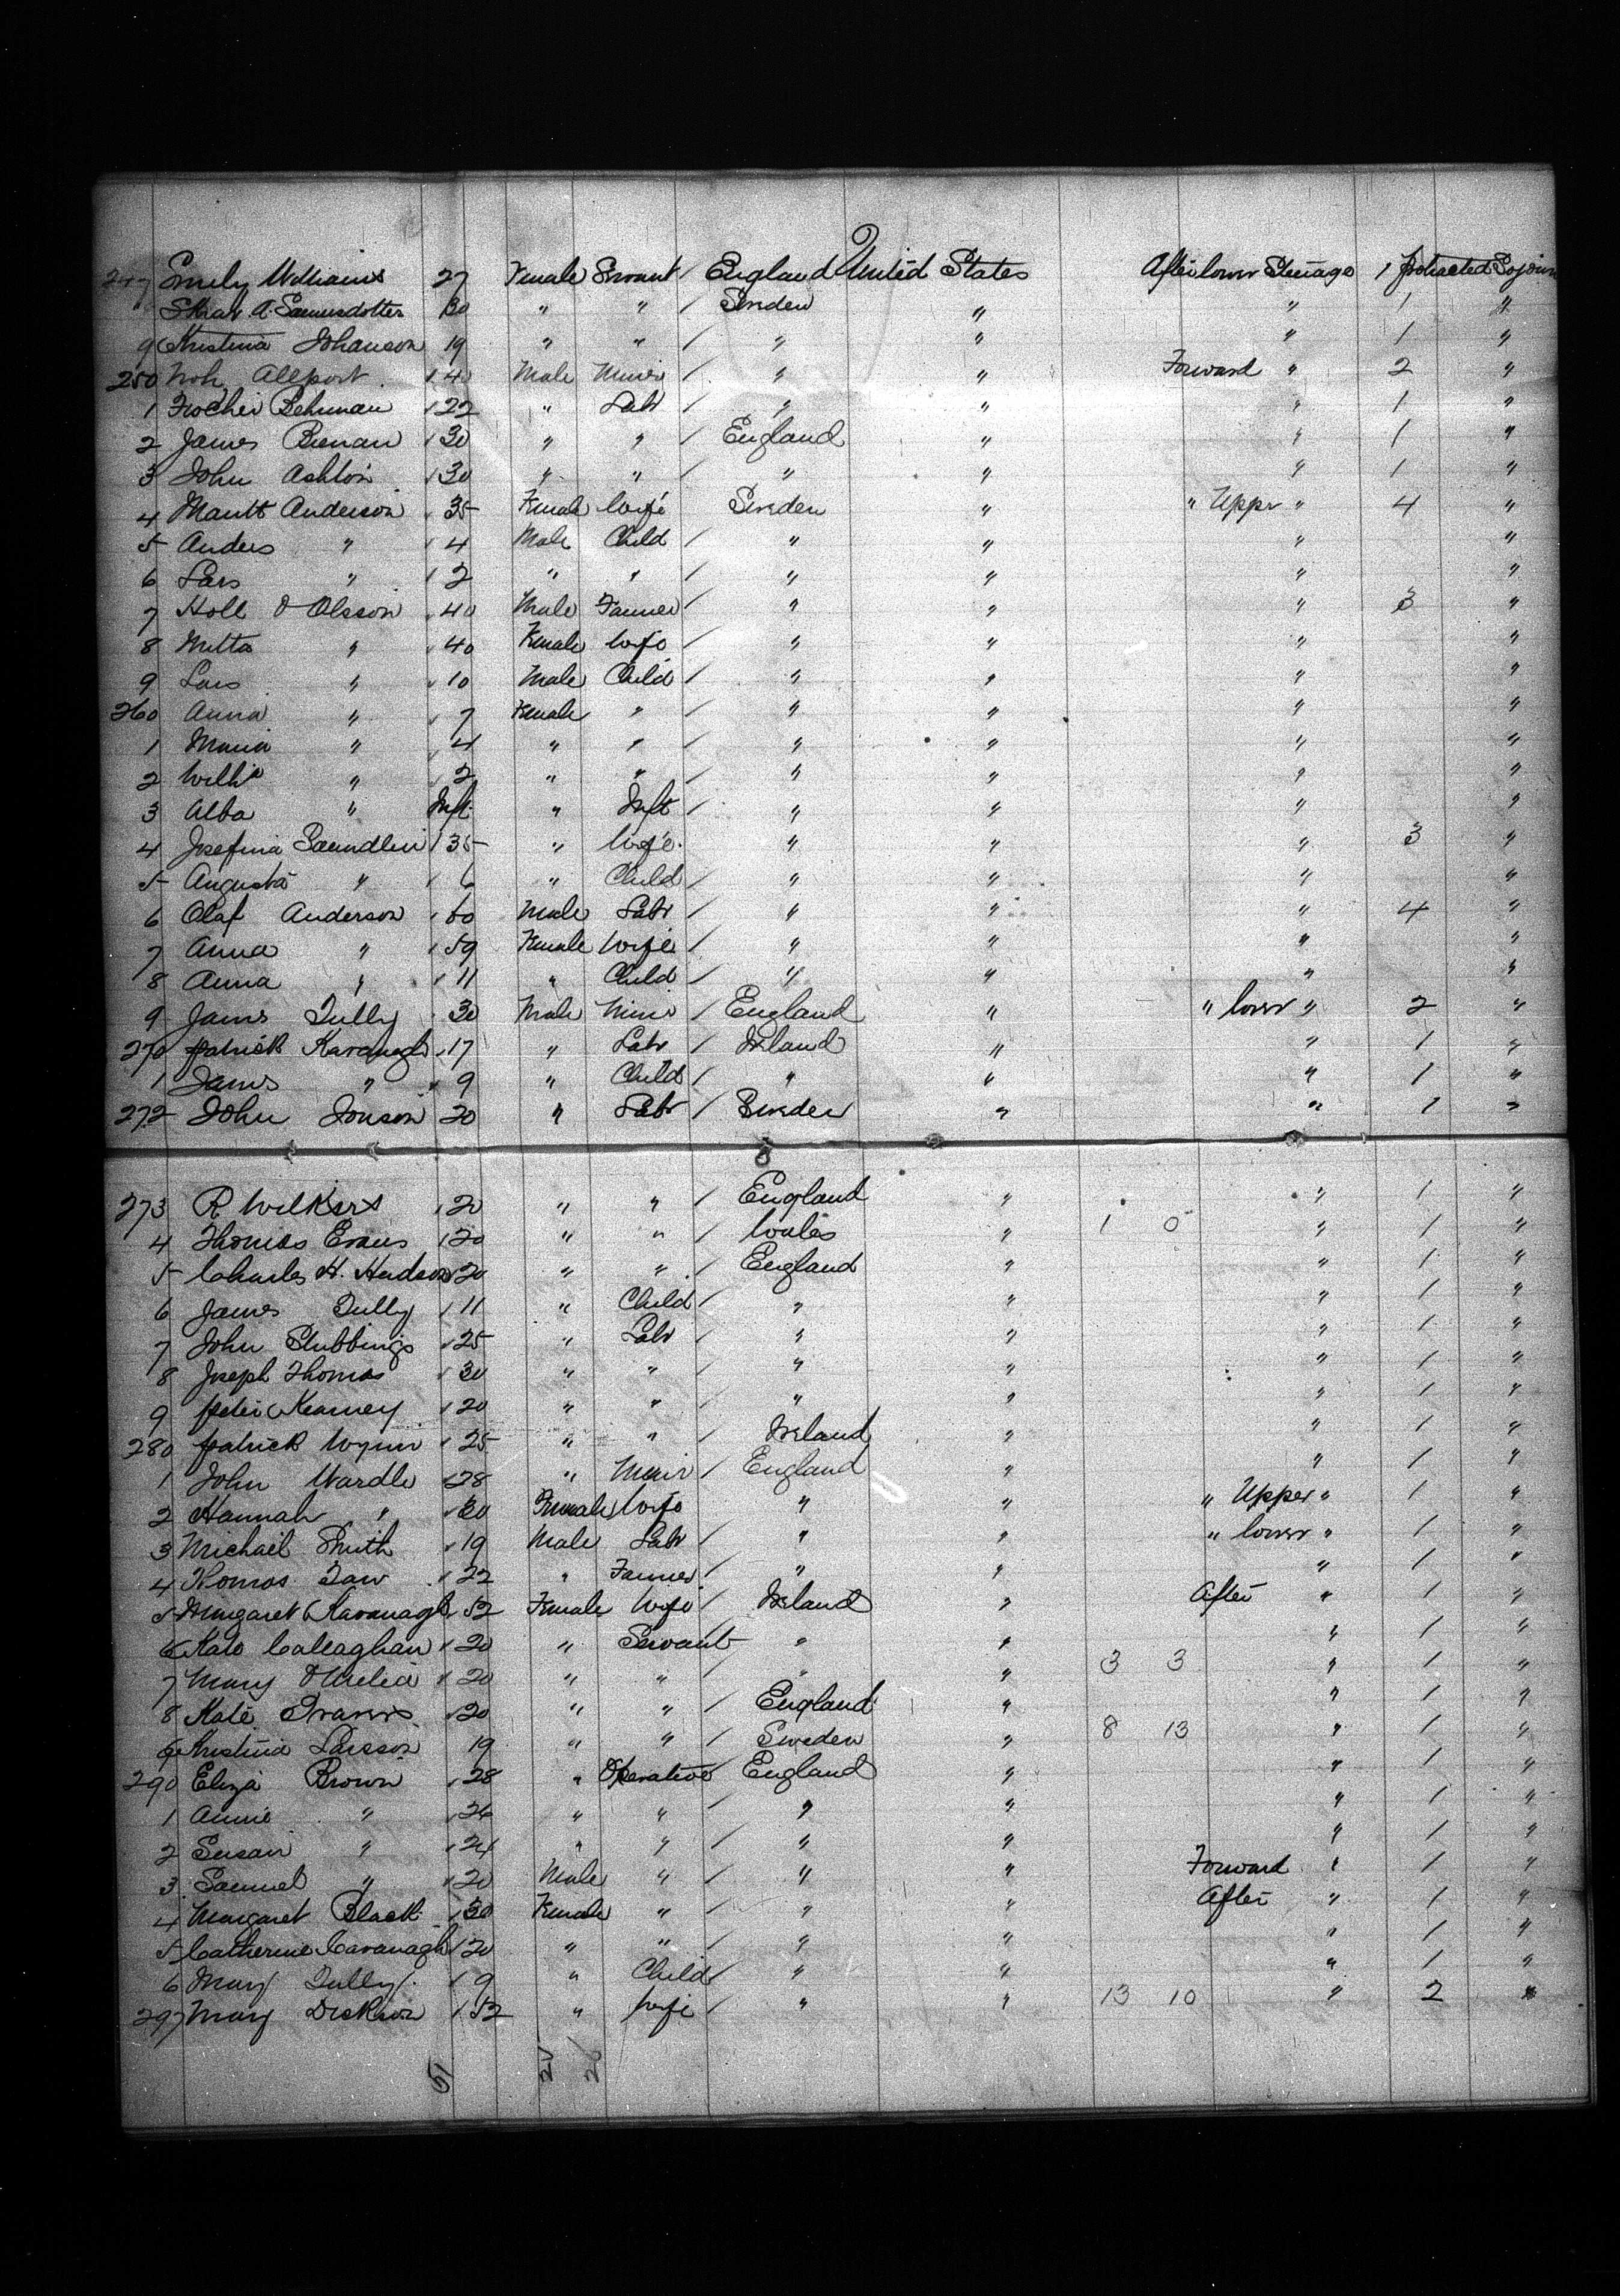 247 Emily Williams 27 Female Servant / England United States After lower Steerage 1 protracted Sojourn
A. Samuesdotter 30 " " / Sweden " " 1 "
9 Kristina Johanson 19 " " / " " " 1 "
250 Allport 40 Male Miner / " " Forward " 2 "
1 Behrman 22 " Labr / " " " 1 "
2 James 30 " " / England " " 1 "
3 John Ashton 30 " " / " " " 1 "
4 Anderson 35 Female Wife Sweden " " Upper " 4 "
5 Anders " 4 Male Child / " " " "
6 Lars " 2 " " / " " " "
7 Holl O Olsson 40 Male Farmer / " " " 3 "
8 Metta " 40 Female Wife / " " " "
9 Lars " 10 Male Child / " " " "
260 Anna " 7 Female " / " " " "
1 Maria " 4 " " / " " " "
2 " 2 " " / " " " "
3 Alba " Inft " Inft / " " " "
4 Josefina 35 " Wife " " " 3 "
5 Augusta " 6 " Child / " " " "
6 Olaf Anderson 60 Male Labr / " " " 4 "
7 Anna " 59 Female Wife / " " " "
8 Anna " 11 " Child / " " " "
9 James Tully 30 Male Miner / England " " lower " 2 "
270 Patrick Kavanagh 17 " Labr / Ireland " " 1 "
1 James " 9 " Child / " " " 1 "
272 John Jonson 20 " Labr / Sweden " " 1 "
273 R Wilkers 20 " " / England " " 1 "
4 Thomas Evans 20 " " / Wales " 1 0 " 1 "
5 Charles H. Hudson 20 " " / England " " 1 "
6 James Tully 11 " Child / " " " 1 "
7 John Stubbings 25 " Labr / " " " 1 "
8 Joseph Thomas 30 " " / " " " 1 "
9 Peter Kearney 20 " " / " " " 1 "
280 Patrick Wynn 25 " " / Ireland " " 1 "
1 John Wardle 28 " Miner / England " " 1 "
2 Hannah " 30 Female Wife " " " Upper " 1 "
3 Michael Smith 19 Male Labr / " " " lower " 1 "
4 Thomas Taw 22 " Farmer / " " " 1 "
5 Margaret Kavanagh 52 Female Wife / Ireland " After " 1 "
6 Kate Callaghan 20 " Servant " " " 1 "
7 Mary O'Melia 20 " " / " " 3 3 " 1 "
8 Kate Travers 20 " " / England " " 1 "
9 Kristina Larsson 19 " " / Sweden " 8 13 " 1 "
290 Eliza Brown 28 " Operative England " " 1 "
1 Annie " 26 " " / " " " 1 "
2 Susan " 24 " " / " " " 1 "
3 Samuel " 20 Male " / " " Forward " 1 "
4 Margaret Black 30 Female " / " " After " 1 "
5 Catherine Cavanagh 20 " " / " " " 1 "
6 Mary Tully 9 " Child / " " " 1 "
297 Mary Dickson 52 " Wife / " " 13 10 " 2 "
51 26